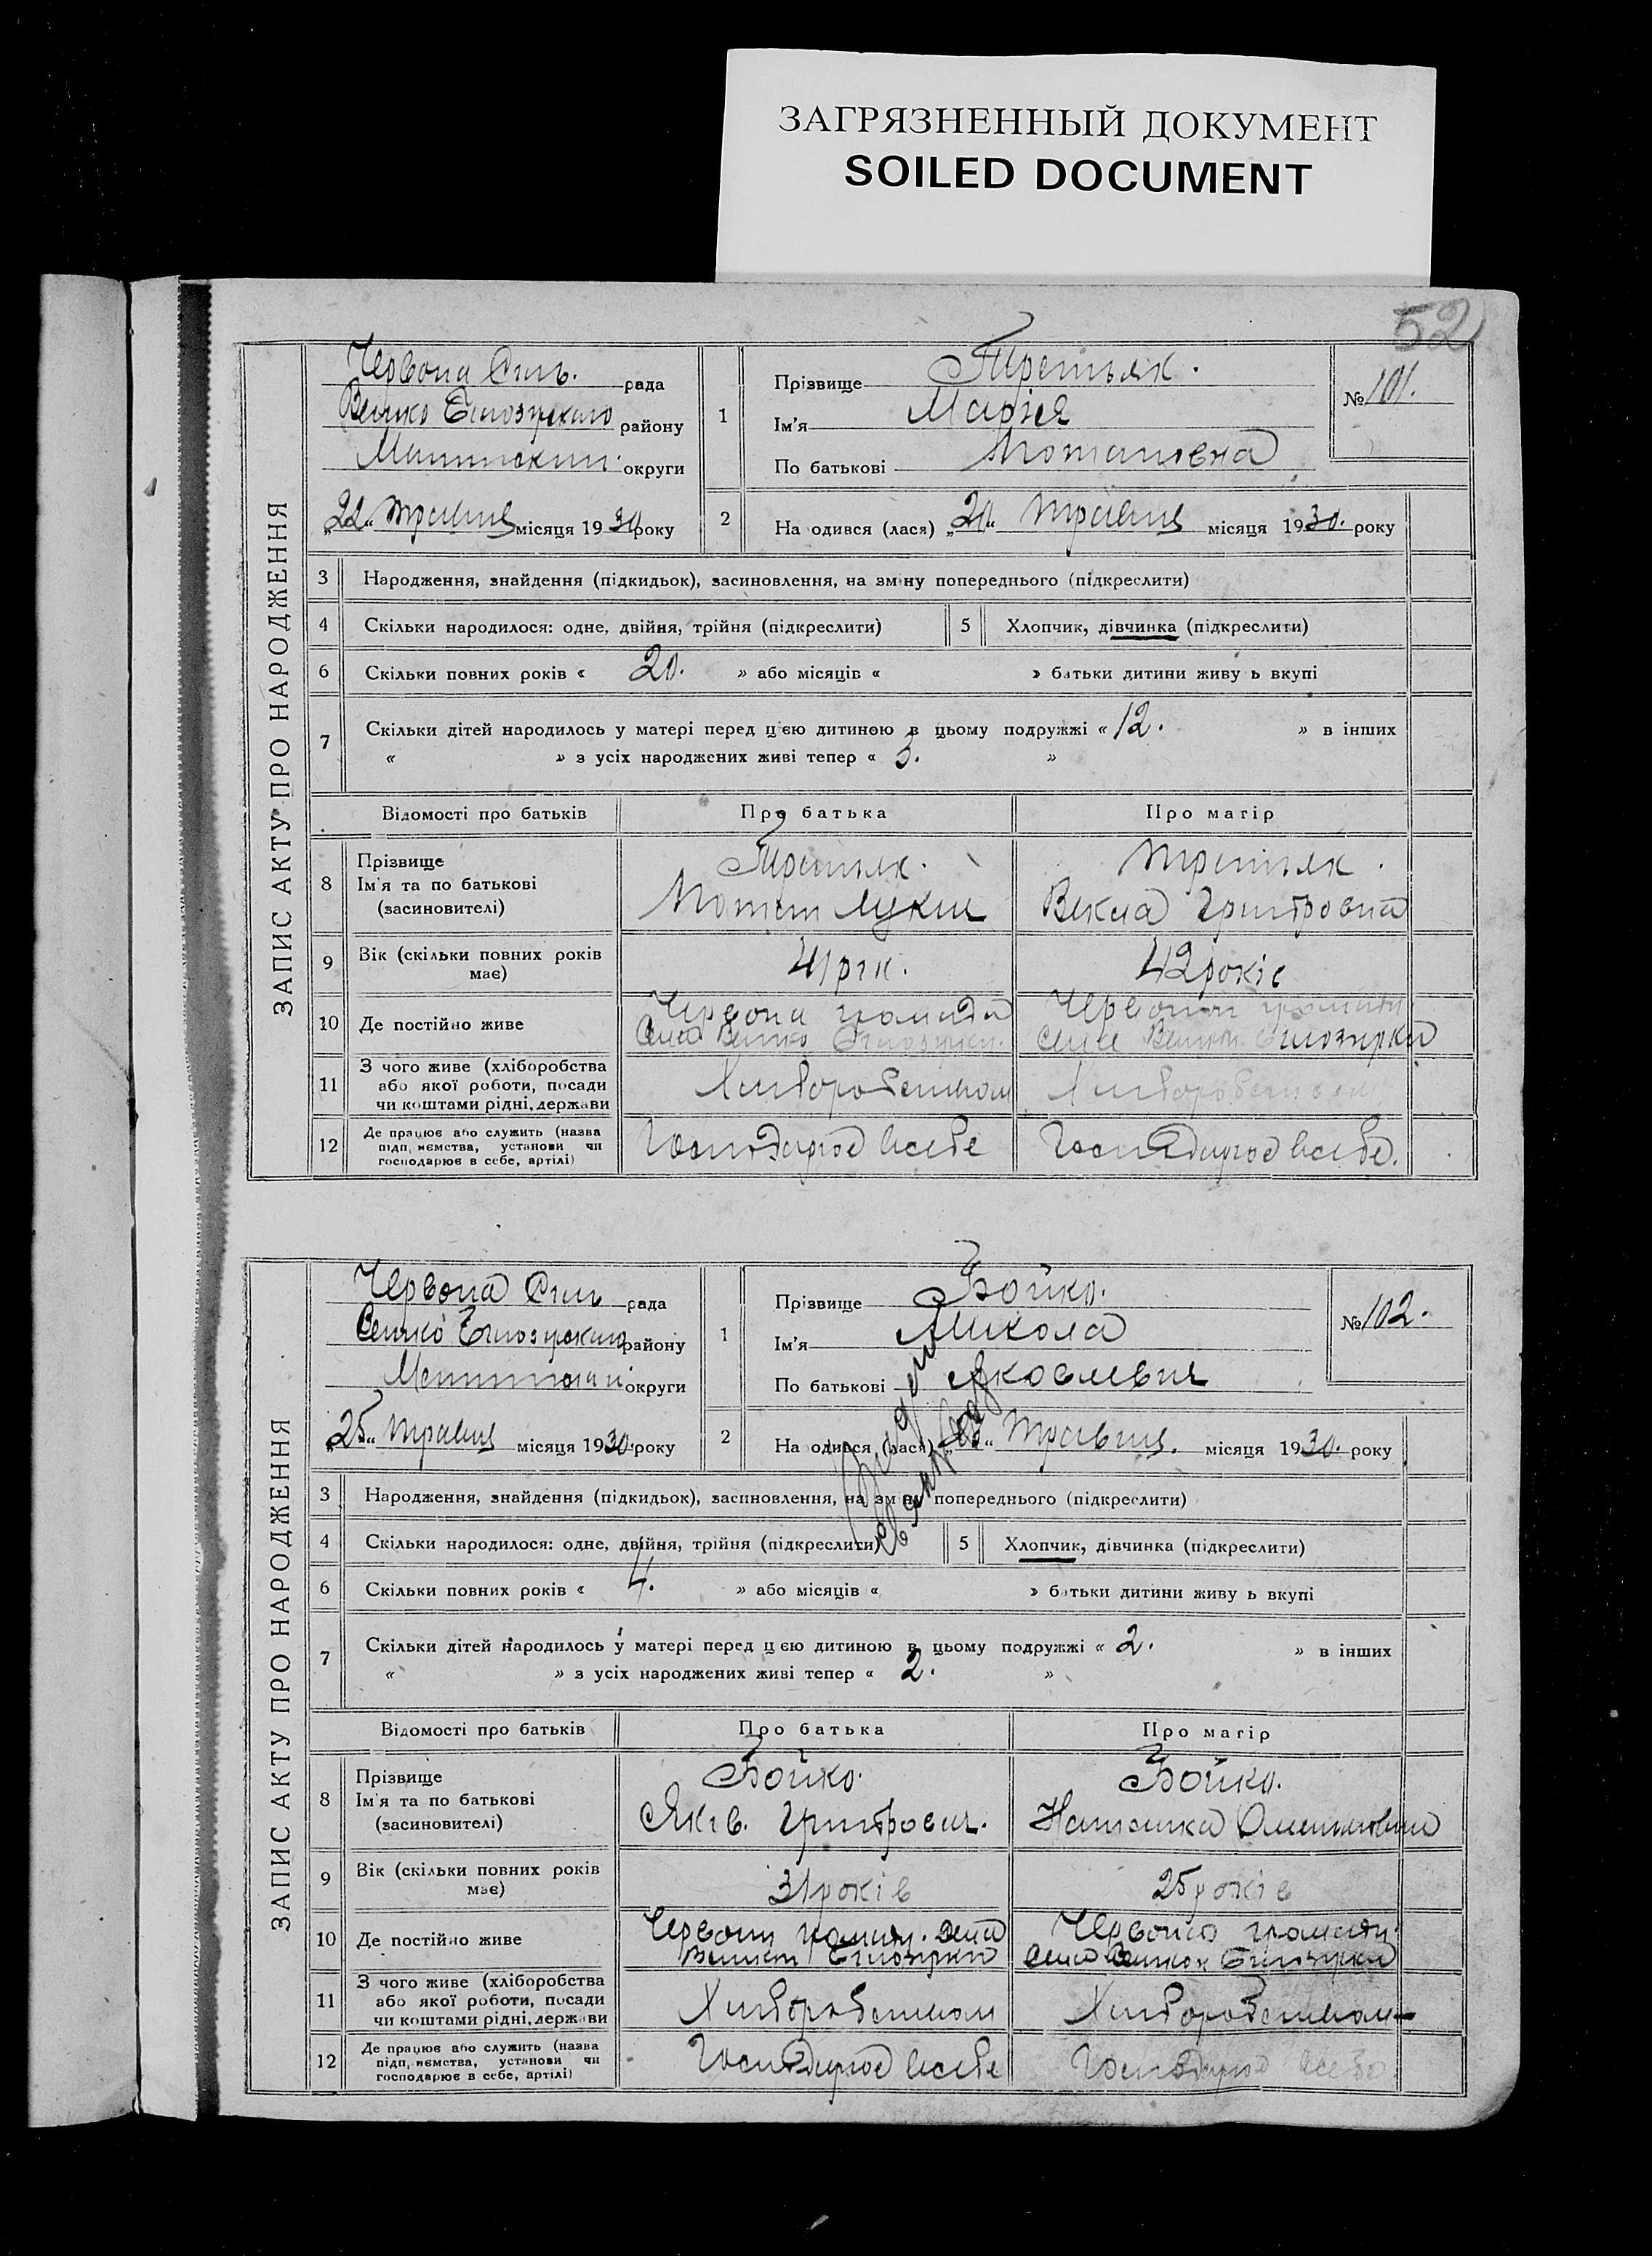 ЗАГРЯЗНЕННЫЙ ДОКУМЕНТ
SOILED DOCUMENT
52
ЗАПИС АКТУ ПРО НАРОДЖЕННЯ
Червона рада
району
округи
„22“ травня місяця 1930 року
1
Прізвище Третьяк.
Ім'я Марія
По батькові Потаповна
№ 101.
2
На одився (лася) „20“ травня місяця 1930. року
3 Народження, знайдення (підкидьок), засиновлення, на зміну попереднього (підкреслити)
4 Скільки народилося: одне, двійня, трійня (підкреслити)
5 Хлопчик, дівчинка (підкреслити)
6 Скільки повних років « 20. » або місяців « » батьки дитини живу ь вкупі
7 Скільки дітей народилось у матері перед цією дитиною в цьому подружжі « 12. » в інших
« » з усіх народжених живі тепер « 3. »
Відомості про батьків Про батька Про матір
8 Прізвище Третьяк. Третьяк.
Ім'я та по батькові
(засиновителі)
9 Вік (скільки повних років має) 41 рік. 42 років
10 Де постійно живе Червона громада Червона громада
11 З чого живе (хліборобства
або якої роботи, посади
чи коштами рідні, держави Хліборобством Хліборобством
12 Де працює або служить (назва
підп, ємства, установи чи
господарює в себе, артілі) Господарює всебе Господарює всебе.
ЗАПИС АКТУ ПРО НАРОДЖЕННЯ
Червона рада
району
округи
„25“ травня місяця 1930. року
1
Прізвище Бойко.
Ім'я Микола
По батькові Яковлевич
№ 102.
2
На одився (лася) травня. місяця 1930. року
3 Народження, знайдення (підкидьок), засиновлення, на зміну попереднього (підкреслити)
4 Скільки народилося: одне, двійня, трійня (підкреслити)
5 Хлопчик, дівчинка (підкреслити)
6 Скільки повних років « 4. » або місяців « » батьки дитини живу ь вкупі
7 Скільки дітей народилось у матері перед цією дитиною в цьому подружжі « 2. » в інших
« » з усіх народжених живі тепер « 2. »
Відомості про батьків Про батька Про матір
8 Прізвище Бойко. Бойко.
Ім'я та по батькові Яків.
(засиновителі)
9 Вік (скільки повних років має) 31 років 25 років
10 Де постійно живе Червона громада
11 З чого живе (хліборобства
або якої роботи, посади
чи коштами рідні, держави Хліборобством Хліборобством
12 Де працює або служить (назва
підп, ємства, установи чи
господарює в себе, артілі) Господарює всебе Господарює всебе